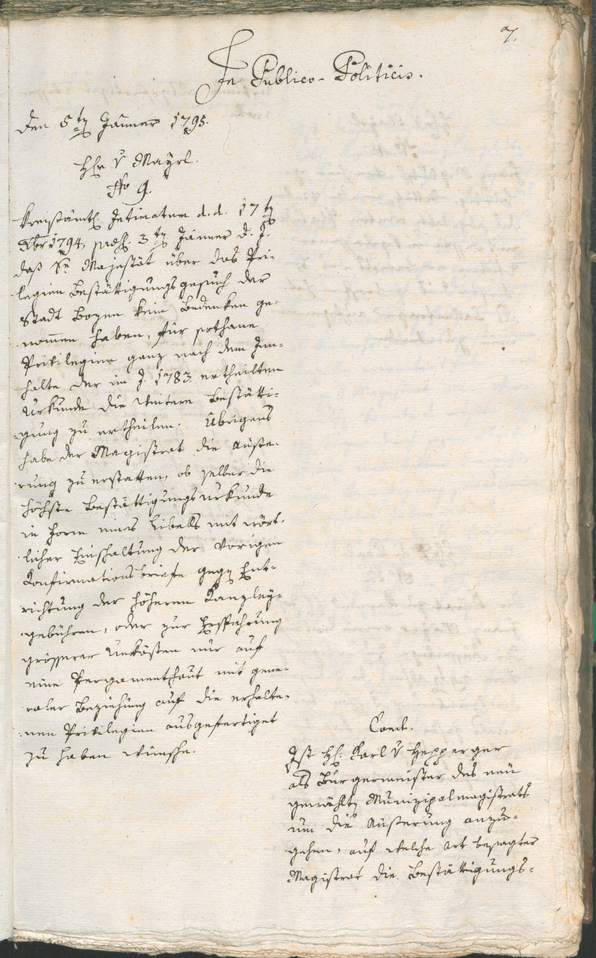 7.
In Publico-Politicis.
den 5ten Jänner 1795.
Hr. v Mayrl.
No 9.
Kreisämtl. Intimatum d.d. 17ten
Xbr 1794, præs. 3ten Jänner d. J.
daß Se. Majestät über das Pri-
legien Bestätigungsgesuch der
Stadt Bozen kein Bedenken ge-
nommen haben, für sothane
Privilegien ganz nach dem Inn-
halte der im J. 1783. ertheilten
Urkunde die weitere Bestätti-
gung zu ertheilen. Übrigens
habe der Magistrat die Äuße-
rung zu erstatten, ob selber die
höchste Bestättigungsurkunde
in Form eines Libells mit wört-
licher Einschaltung der vorigen
Konfirmationsbriefe gegen Ent-
richtung der höheren Kanzley-
gebühren, oder zur Ersparung
grösserer Unkösten nur auf
eine Pergamenthaut mit gene-
raler Beziehung auf die erhalte-
nen Privilegien ausgefertiget
zu haben wünsche.
Concl.
Ist Hr. Karl v Hepperger
als Bürgermeister des neu
gewählten Munizipalmagistrats
um die Äußerung anzu-
gehen, auf welche Art besagter
Magistrat die Bestättigungs-